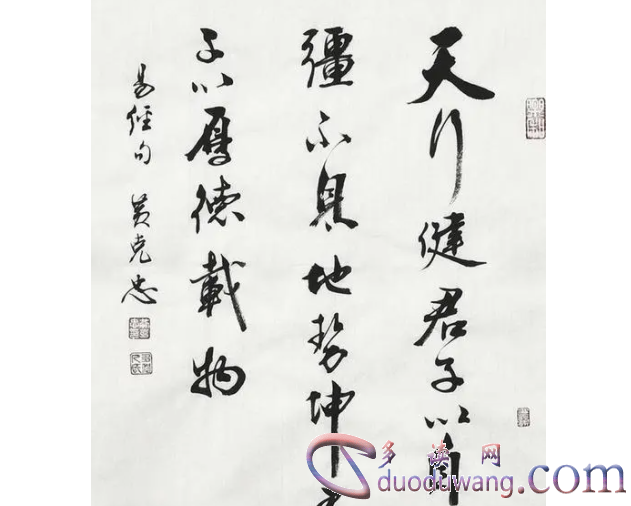 天行健君子以自
彊不息地势坤
子以厚德載物
易經句 黄克忠
多读网
duoduwang.com